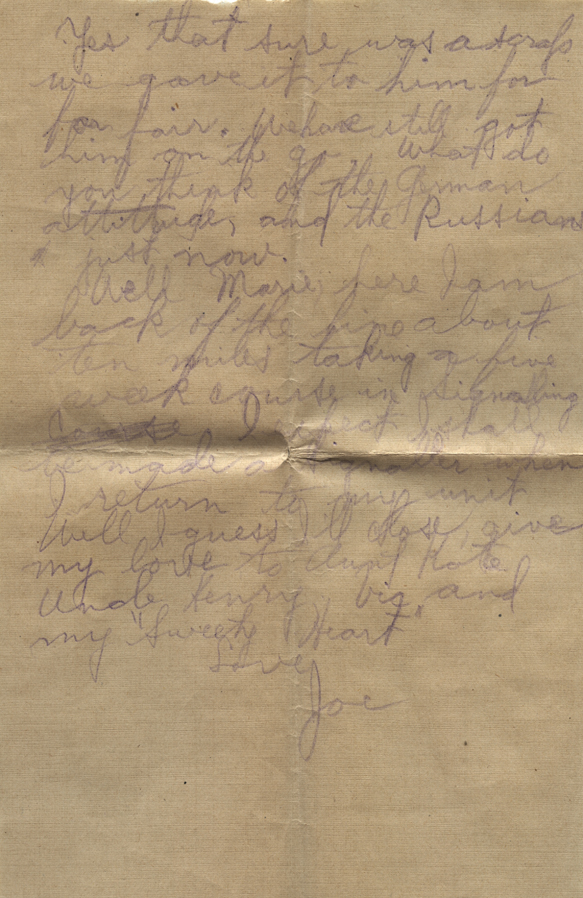 Yes that sure was a scrap
we gave it to him for
for fair. We have still got
him on the go. What do
you think of the German
attitude, and the Russians
just now.
Well Marie here I am
back of the line about
ten miles taking a five
week course in signaling
I expect I shall
be made a signaller when
I return to my unit
Well I guess I'll close, give
my love to Aunt Kate
Uncle Henry, Vic, and
my "Sweety Heart"
Love
Joe